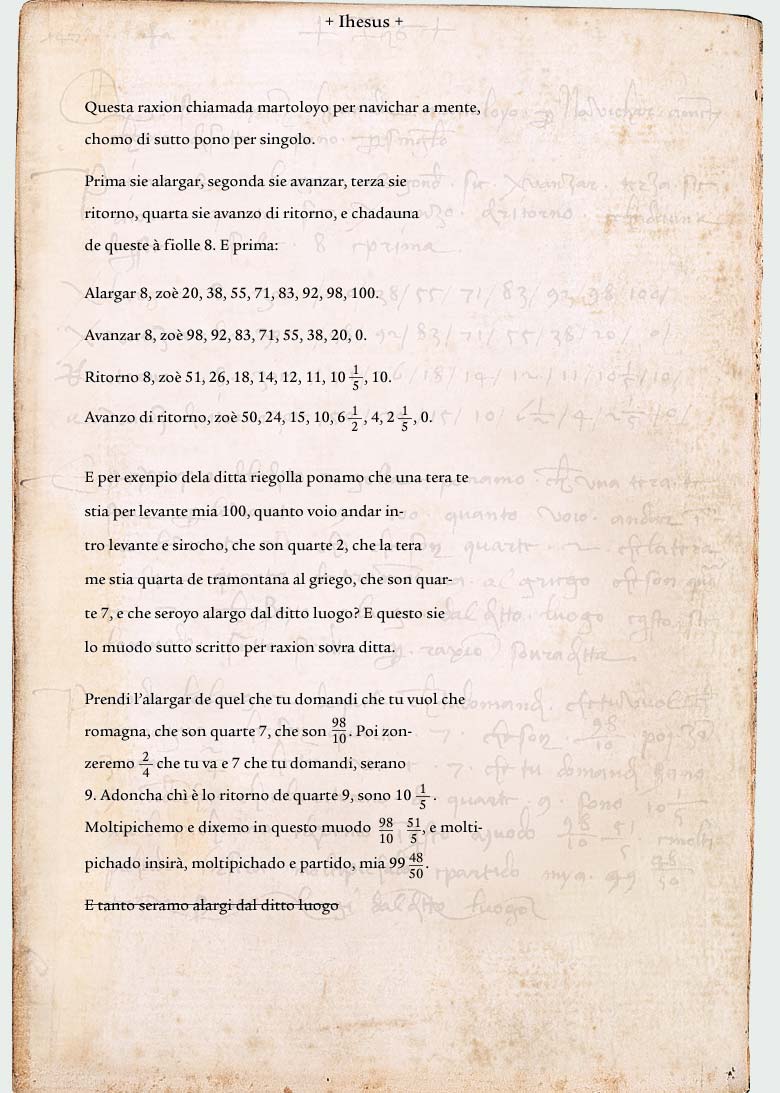 + Ihesus +
Questa raxion chiamada martoloyo per navichar a mente,
chomo di sutto pono per singolo.
Prima sie alargar, segonda sie avanzar, terza sie
ritorno, quarta sie avanzo di ritorno, e chadauna
de queste à fiolle 8. E prima:
Alargar 8, zoè 20, 38, 55, 71, 83, 92, 98, 100.
Avanzar 8, zoè 98, 92, 83, 71, 55, 38, 20, 0.
Ritorno 8, zoè 51, 26, 18, 14, 12, 11, 10 1/5, 10.
Avanzo di ritorno, zoè 50, 24, 15, 10, 6 1/2, 4, 2 1/5, 0.
E per exenpio dela ditta riegolla ponamo che una tera te
stia per levante mia 100, quanto voio andar in-
tro levante e sirocho, che son quarte 2, che la tera
me stia quarta de tramontana al griego, che son quar-
te 7, e che seroyo alargo dal ditto luogo? E questo sie
lo muodo sutto scritto per raxion sovra ditta.
Prendi l'alargar de quel che tu domandi che tu vuol che
romagna, che son quarte 7, che son 98/10. Poi zon-
zeremo 2/4 che tu va e 7 che tu domandi, serano
9. Adoncha chì è lo ritorno de quarte 9, sono 10 1/5.
Moltipichemo e dixemo in questo muodo 98/10 51/5, e molti-
pichado insirà, moltipichado e partido, mia 99 48/50.
E tanto seramo alargi dal ditto luogo